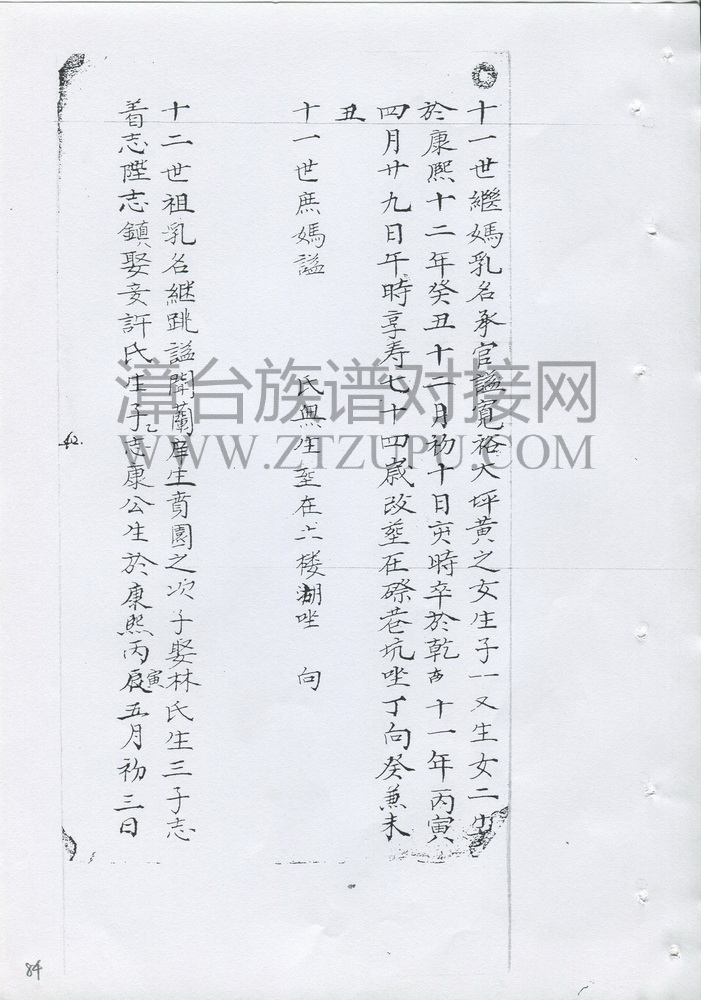 十一世繼媽乳名承官謚寬裕大坪黃之女生子一又生女二生
於康熙十二年癸丑十二月初十日亥時卒於乾 十一年丙寅
四月廿九日午時享寿七十四歲改塟在磜巷坑坐丁向癸兼未
丑
十一世庶媽謚 氏無生塟在 楼湖坐 向
十二世祖乳名継跳謚聞蘭庠生賁園之次子娶林氏生三子志
着志陞志鎮娶妾許氏生子乙志康公生於康熙丙辰寅五月初三日
42.
84
漳台族谱对接网
WWW.ZTZUPU.COM